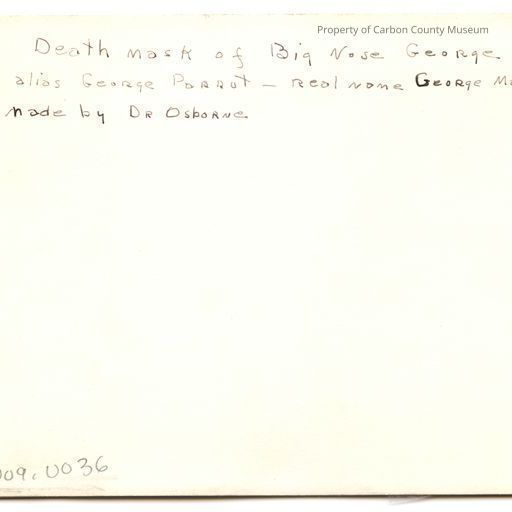 Property of Carbon County Museum
Death mask of Big Nose George
alias George Parrot — real name George
made by Dr Osborne
009.0036